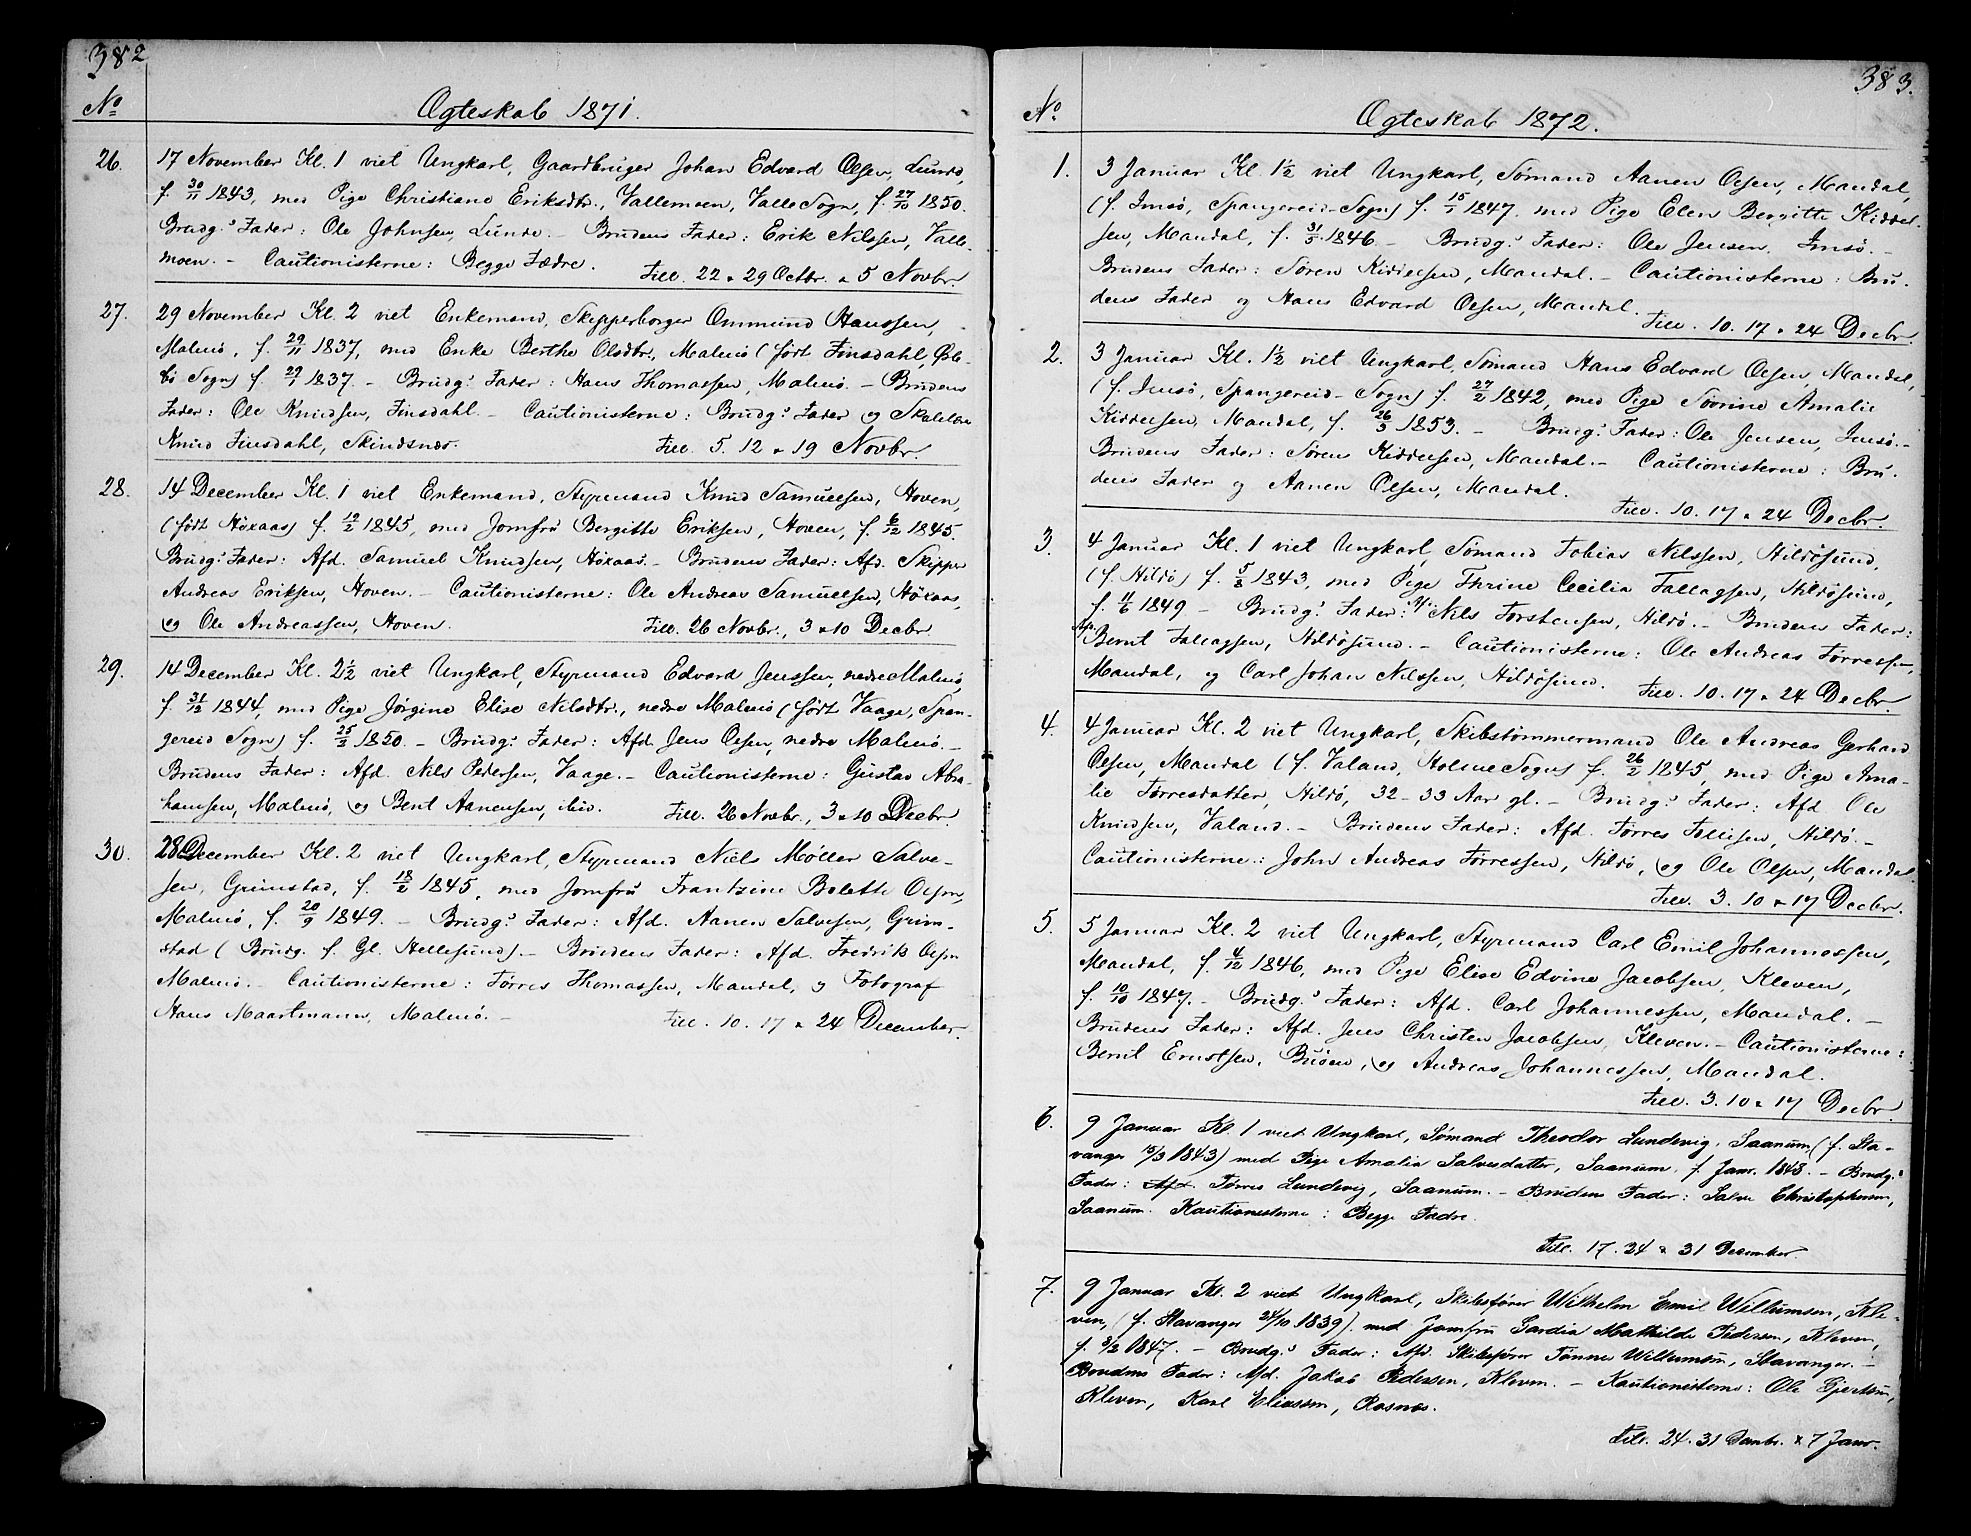 382
No
Ægteskab 1871.
26.
17 November Kl. 1 viet Ungkarl, Gaardbruger Johan Edvard Olsen, Lunde,
f. 30/11 1843, med Pige Christiane Eriksdtr., Vallemoen, Valle Sogn, f. 27/10 1850.
Brudg.s Fader: Ole Johnsen, Lunde. – Brudens Fader: Erik Nilssen, Valle-
moen. – Cautionisterne: Begge Fædre.
Till. 22 & 29 Octbr. & 5 Novbr.
27.
29 November Kl. 2 viet Enkemand, Skipperborger Ommund Hanssen,
Malmö, f. 29/11 1837, med Enke Berthe Olsdtr, Malmö (født Finsdahl, Øsle-
bö Sogn) f. 29/1 1837. – Brudg.s Fader: Hans Thomassen, Malmö. – Brudens
Fader: Ole Knudsen, Finsdahl. – Cautionisterne: Brudg.s Fader og
Knud Finsdahl, Skindsnæs.
Till. 5. 12 & 19 Novbr.
28.
14 December Kl. 1 viet Enkemand, Styrmand Knud Samuelsen, Hoven,
(født Höxaas) f. 19/2 1845, med Jomfru Bergitte Eriksen, Hoven, f. 6/12 1845.
Brudg.s Fader: Afd. Samuel Knudsen, Höxaas. – Brudens Fader: Afd. Skipper
Andreas Eriksen, Hoven. – Cautionisterne: Ole Andreas Samuelsen, Höxaas,
og Ole Andreassen, Hoven.
Till. 26 Novbr., 3 & 10 Decbr.
29.
14 December Kl. 2½ viet Ungkarl, Styrmand Edvard Jenssen, nedre Malmö,
f. 31/12 1844, med Pige Jörgine Elise Nilsdtr., nedre Malmö (født Vaage, Span-
gereid Sogn) f. 25/3 1850. – Brudg.s Fader: Afd. Jens Olsen, nedre Malmö. –
Brudens Fader: Afd. Nils Pedersen, Vaage. – Cautionisterne: Gustav Abra-
hamsen, Malmö, og Bent Aanensen, ibid.
Till. 26 Novbr., 3 & 10 Decbr.
30.
28 December Kl. 2 viet Ungkarl, Styrmand Niels Møller Salve-
sen, Grimstad, f. 18/2 1845, med Jomfru Frantzine Bolette Olsen,
Malmö, f. 20/9 1849. – Brudg.s Fader: Afd. Aanen Salvesen, Grim-
stad (Brudg. f. Gl. Hellesund). – Brudens Fader: Afd. Fredrik Olsen
Malmö. – Cautionisterne: Törres Thomassen, Mandal, og Fotograf
Hans Maartmann, Malmö. –
Till. 10. 17 & 24 December.
383.
No.
Ægteskab 1872.
1.
3 Januar Kl. 1½ viet Ungkarl, Sömand Aanen Olsen, Mandal,
(f. Imsö, Spangereid-Sogn) f. 15/1 1847, med Pige Elen Bergitte Kiddel-
sen, Mandal, f. 31/5 1846. – Brudg.s Fader: Ole Jensen, Imsö. –
Brudens Fader: Sören Kiddelsen, Mandal. – Cautionisterne: Bru-
dens Fader og Hans Edvard Olsen, Mandal.
Till. 10. 17 & 24 Decbr.
2.
3 Januar Kl. 1½ viet Ungkarl, Sömand Hans Edvard Olsen, Mandal,
(f. Imsö, Spangereid-Sogn) f. 27/2 1842, med Pige Sörine Amalie
Kiddelsen, Mandal, f. 26/5 1853. – Brudg.s Fader: Ole Jensen, Imsö. –
Brudens Fader: Sören Kiddelsen, Mandal. – Cautionisterne: Bru-
dens Fader og Aanen Olsen, Mandal.
Till. 10. 17 & 24 Decbr.
3.
4 Januar Kl. 1 viet Ungkarl, Sömand Tobias Nilssen, Hildösund,
(f. Hildö) f. 5/8 1843, med Pige Thrine Cecilia Tallagsen, Hildösund,
f. 11/6 1849 – Brudg.s Fader: Nils Torstensen, Hildö. – Brudens Fader:
Afd. Bernt Tallagsen, Hildösund. – Cautionisterne: Ole Andreas Törressen,
Mandal, og Carl Johan Nilssen, Hildösund.
Till. 10. 17 & 24 Decbr.
4.
4 Januar Kl. 2 viet Ungkarl, Skibstømmermand Ole Andreas Gerhard
Olsen, Mandal (f. Valand, Holme Sogn) f. 26/2 1845, med Pige Ama-
lie Törresdatter, Hildö, 32–33 Aar gl. – Brudg.s Fader: Afd. Ole
Knudsen, Valand. – Brudens Fader: Afd. Törres Tollisen, Hildö. –
Cautionisterne: John Andreas Törressen, Hildö, og Ole Olsen, Mandal.
Till. 3. 10 & 17 Decbr.
5.
5 Januar Kl. 2 viet Ungkarl, Styrmand Carl Emil Johannessen,
Mandal, f. 4/12 1846, med Pige Elise Edvine Jacobsen, Kleven,
f. 10/10 1847. – Brudg.s Fader: Afd. Carl Johannessen, Mandal. –
Brudens Fader: Afd. Jens Christen Jacobsen, Kleven. – Cautionisterne:
Bernt Ernstsen, Buöen, og Andreas Johannessen, Mandal.
Till. 3. 10 & 17 Decbr
6.
9 Januar Kl. 1 viet Ungkarl, Sømand Theodor Lundevig, Saanum, (f. Sta-
vanger 15/3 1843) med Pige Amalia Salvesdatter, Saanum, f. Janr. 1848. – Brudg.s
Fader: Afd. Törres Lundevig, Saanum. – Brudens Fader: Salve Christophersen,
Saanum. Kautionisterne: Begge Fædre.
Till. 17. 24 & 31 December.
7.
9 Januar Kl. 2 viet Ungkarl, Skibsfører Wilhelm Emil Willumsen, Kle-
ven, (f. Stavanger 24/10 1839) med Jomfru Gardia Mathilde Pedersen, Kleven,
f. 8/2 1847. – Brudg.s Fader: Afd. Skibsfører Tønnes Willumsen, Stavanger. –
Brudens Fader: Afd. Jakob Pedersen, Kleven. – Kautionisterne: Ole Gjertsen,
Kleven, Karl Eliassen, Rosnæs.
Till. 24. 31 Decbr. & 7 Janr.